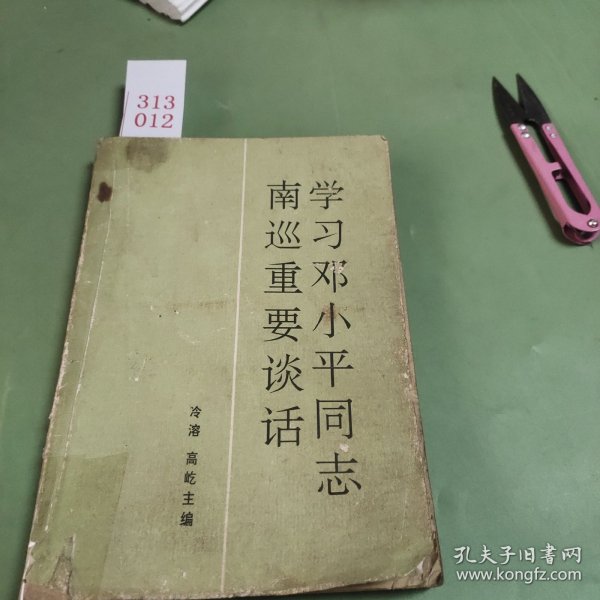 313
012
学习邓小平同志
南巡重要谈话
冷溶 高屹主编
孔夫子旧书网
www.kongfz.com